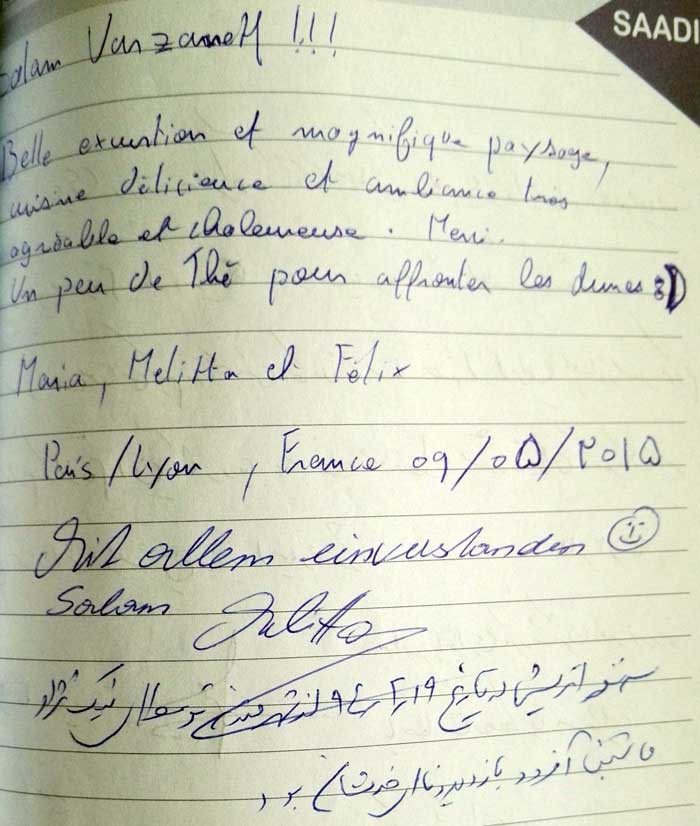 SAADI
Salam VarzaneH !!!
Belle excurtion et magnifique paysage,
cuisine délicience et ambiance très
agréable et chaleureuse. Merci.
Un peu de Thé pour affronter les dunes :D
Maria, Melitta et Félix
Paris / Lyon, France 09/0۵/۲۰۱۵
Mit allem einverstanden ☺
Salam
اتریشی در تاریخ ۹۴/۲/۱۹ نیک نژاد
آفرود بازدید